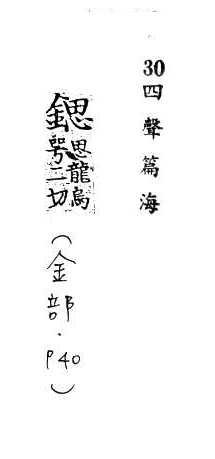 30四聲篇海
鍶思龍烏咢二切（金部．P40）